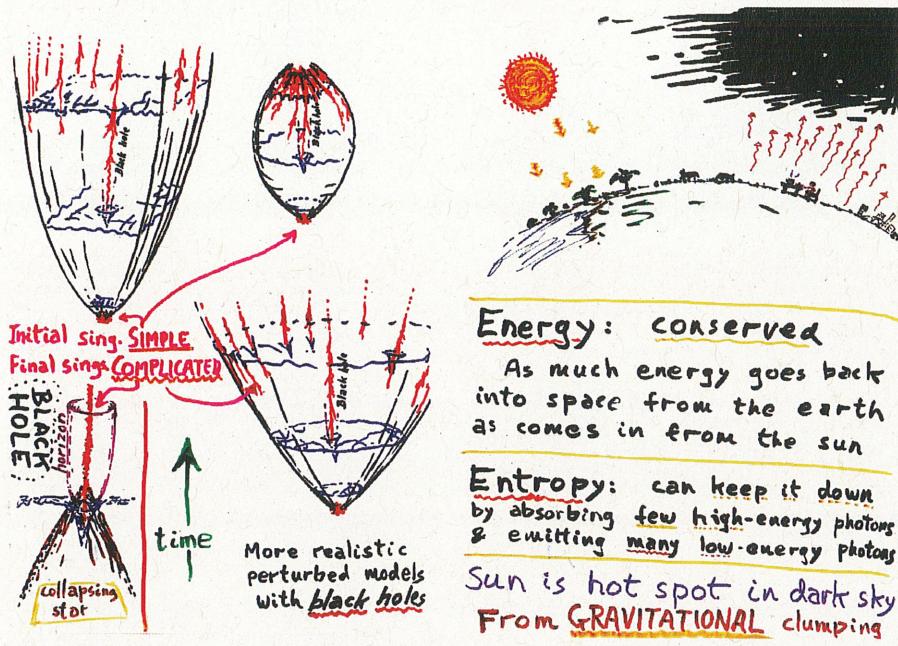 Black hole
Black hole
Initial sing. SIMPLE
Final sings. COMPLICATED
BLACK
HOLE
horizon
collapsing
star
time
Black hole
More realistic
perturbed models
with black holes
Energy: conserved
As much energy goes back
into space from the earth
as comes in from the sun
Entropy: can keep it down
by absorbing few high-energy photons
& emitting many low-energy photons
Sun is hot spot in dark sky
From GRAVITATIONAL clumping